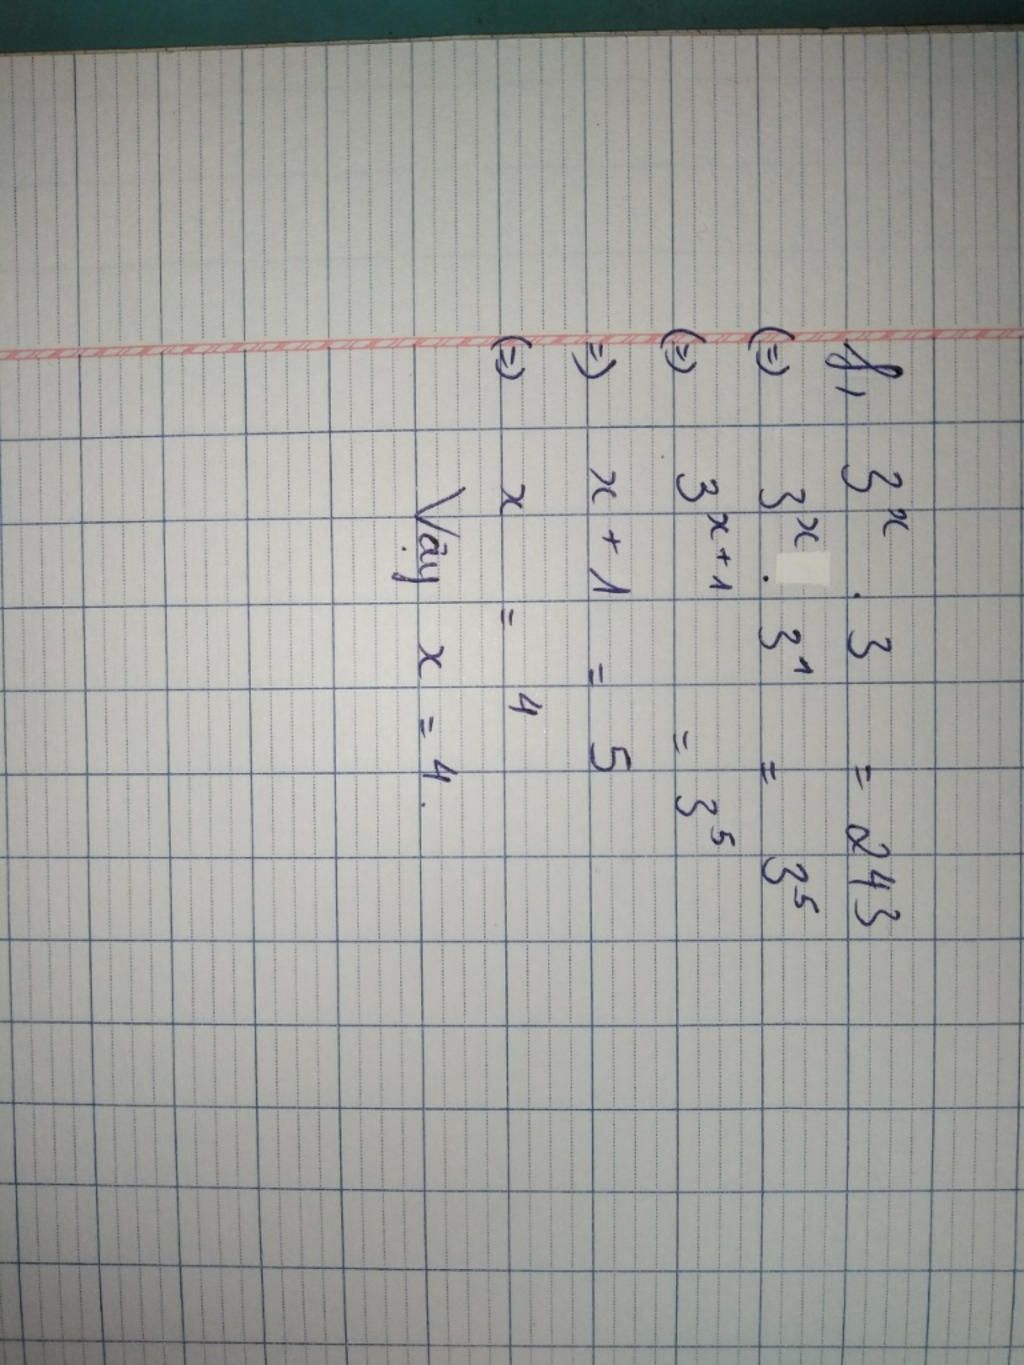 f, 3ˣ . 3 = 243
(=) 3ˣ . 3¹ = 3⁵
(=) 3ˣ⁺¹ = 3⁵
=) x + 1 = 5
(=) x = 4
Vậy x = 4.